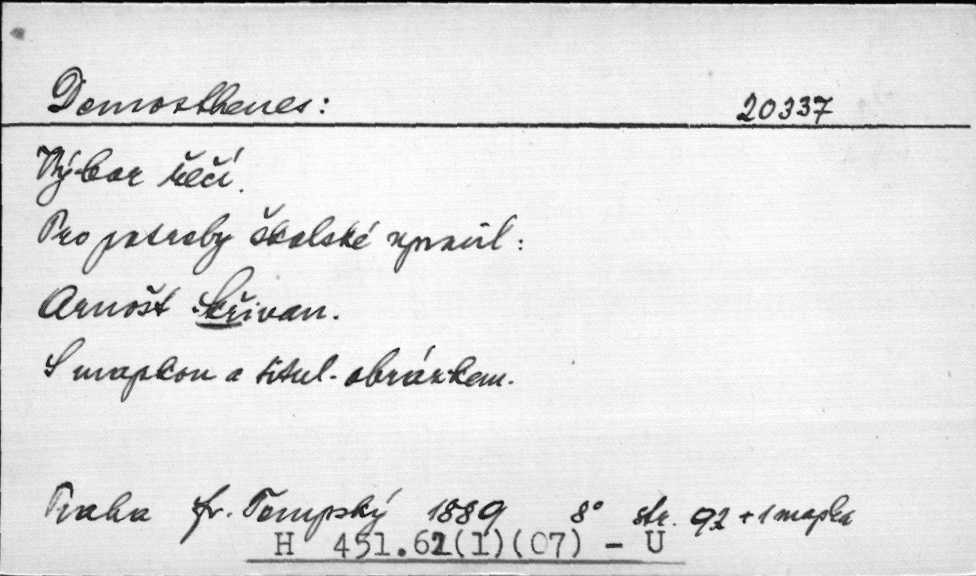 Demosthenes: 20337
Výbor řečí.
Pro potreby školské upravil:
Arnošt Skřivan.
S mapkou a titul. obrázkem.
Praha Fr. Tempský 1889 8° str. 92 + 1 mapka
H 451.62(1)(07) - U